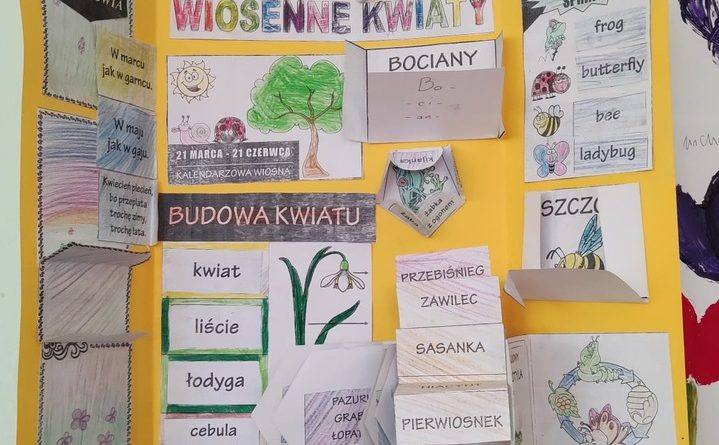 WIOSENNE KWIATY
W marcu
jak w garncu.
W maju
jak w gaju.
Kwiecień plecień,
bo przeplata
trochę zimy,
trochę lata.
21 MARCA - 21 CZERWCA
KALENDARZOWA WIOSNA
BUDOWA KWIATU
kwiat
liść
łodyga
cebula
BOCIANY
Bo -
- ci -
- an -
kijanka
żabka
z ogonem
PRZEBIŚNIEG
ZAWILEC
SASANKA
HIACYNT
PIERWIOSNEK
PAZUR
GRAB
ŁOPAT
frog
butterfly
bee
ladybug
SZCZ